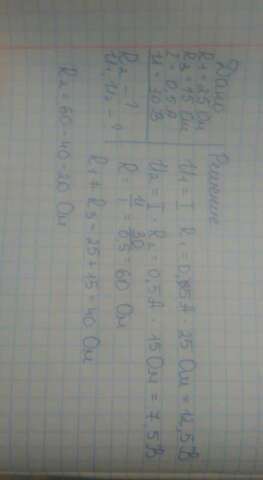 Дано
R1 = 25 Ом
R3 = 15 Ом
I = 0,5 А
U = 30 В
R2 - ?
U1, U2 - ?
Решение
U1 = I · R1 = 0,5 А · 25 Ом = 12,5 В
U2 = I · R2 = 0,5 А · 15 Ом = 7,5 В
R = U/I = 30/0,5 = 60 Ом
R1 + R3 = 25 + 15 = 40 Ом
R2 = 60 - 40 = 20 Ом